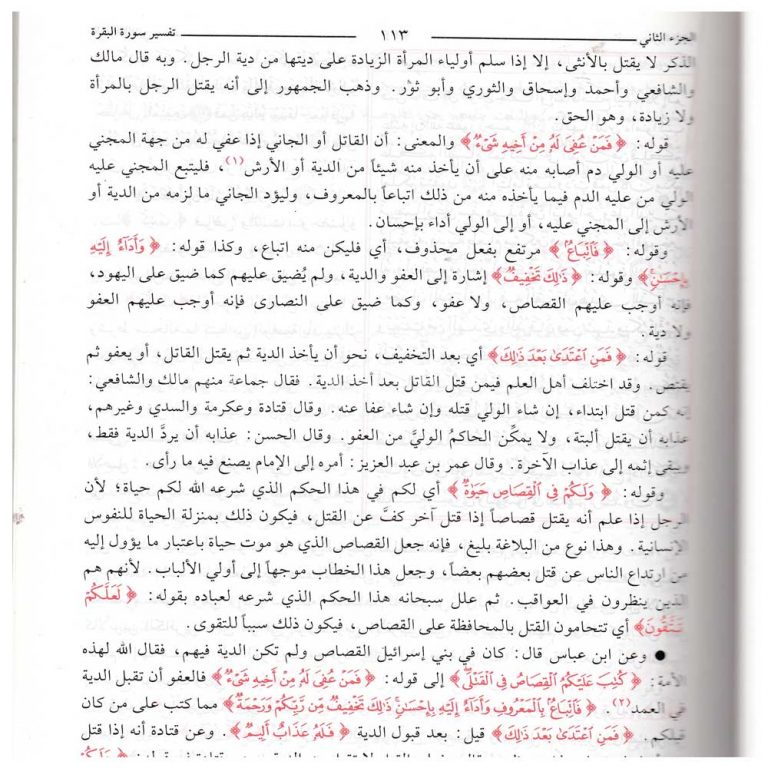 الجزء الثاني ١١٣ تفسير سورة البقرة
الذكر لا يقتل بالأنثى، إلا إذا سلم أولياء المرأة الزيادة على ديتها من دية الرجل. وبه قال مالك
والشافعي وأحمد وإسحاق والثوري وأبو ثور. وذهب الجمهور إلى أنه يقتل الرجل بالمرأة
ولا زيادة، وهو الحق.
قوله: ﴿ فَمَنْ عُفِىَ لَهُ مِنْ أَخِيهِ شَىْءٌ﴾ والمعنى: أن القاتل أو الجاني إذا عفي له من جهة المجني
عليه أو الولي دم أصابه منه على أن يأخذ منه شيئاً من الدية أو الأرش(١)، فليتبع المجني عليه
الولي من عليه الدم فيما يأخذه منه من ذلك اتباعاً بالمعروف، وليؤد الجاني ما لزمه من الدية أو
الأرش إلى المجني عليه، أو إلى الولي أداء بإحسان.
وقوله: ﴿ فَٱتِّبَاعٌ﴾ مرتفع بفعل محذوف، أي فليكن منه اتباع، وكذا قوله: ﴿ وَأَدَآءٌ إِلَيْهِ
بِإِحْسَٰنٍ﴾ وقوله: ﴿ ذَٰلِكَ تَخْفِيفٌ﴾ إشارة إلى العفو والدية، ولم يُضيق عليهم كما ضيق على اليهود،
فإنه أوجب عليهم القصاص، ولا عفو، وكما ضيق على النصارى فإنه أوجب عليهم العفو
ولا دية.
قوله: ﴿ فَمَنِ ٱعْتَدَىٰ بَعْدَ ذَٰلِكَ﴾ أي بعد التخفيف، نحو أن يأخذ الدية ثم يقتل القاتل، أو يعفو ثم
يقتص. وقد اختلف أهل العلم فيمن قتل القاتل بعد أخذ الدية. فقال جماعة منهم مالك والشافعي:
إنه كمن قتل ابتداء، إن شاء الولي قتله وإن شاء عفا عنه. وقال قتادة وعكرمة والسدي وغيرهم،
عذابه أن يقتل ألبتة، ولا يمكِّن الحاكمُ الوليَّ من العفو. وقال الحسن: عذابه أن يردَّ الدية فقط،
ويبقى إثمه إلى عذاب الآخرة. وقال عمر بن عبد العزيز: أمره إلى الإمام يصنع فيه ما رأى.
وقوله: ﴿ وَلَكُمْ فِى ٱلْقِصَاصِ حَيَوٰةٌ﴾ أي لكم في هذا الحكم الذي شرعه الله لكم حياة؛ لأن
الرجل إذا علم أنه يقتل قصاصاً إذا قتل آخر كفَّ عن القتل، فيكون ذلك بمنزلة الحياة للنفوس
الإنسانية. وهذا نوع من البلاغة بليغ، فإنه جعل القصاص الذي هو موت حياة باعتبار ما يؤول إليه
من ارتداع الناس عن قتل بعضهم بعضاً، وجعل هذا الخطاب موجهاً إلى أولي الألباب. لأنهم هم
الذين ينظرون في العواقب. ثم علل سبحانه هذا الحكم الذي شرعه لعباده بقوله: ﴿ لَعَلَّكُمْ
تَتَّقُونَ﴾ أي تتحامون القتل بالمحافظة على القصاص، فيكون ذلك سبباً للتقوى.
● وعن ابن عباس قال: كان في بني إسرائيل القصاص ولم تكن الدية فيهم، فقال الله لهذه
الأمة: ﴿ كُتِبَ عَلَيْكُمُ ٱلْقِصَاصُ فِى ٱلْقَتْلَى﴾ إلى قوله: ﴿ فَمَنْ عُفِىَ لَهُ مِنْ أَخِيهِ شَىْءٌ﴾ فالعفو أن تقبل الدية
في العمد(٢). ﴿ فَٱتِّبَاعٌ بِٱلْمَعْرُوفِ وَأَدَآءٌ إِلَيْهِ بِإِحْسَٰنٍ ذَٰلِكَ تَخْفِيفٌ مِّن رَّبِّكُمْ وَرَحْمَةٌ﴾ مما كتب على من كان
قبلكم. ﴿ فَمَنِ ٱعْتَدَىٰ بَعْدَ ذَٰلِكَ﴾ قيل: بعد قبول الدية ﴿ فَلَهُ عَذَابٌ أَلِيمٌ﴾. وعن قتادة أنه إذا قتل